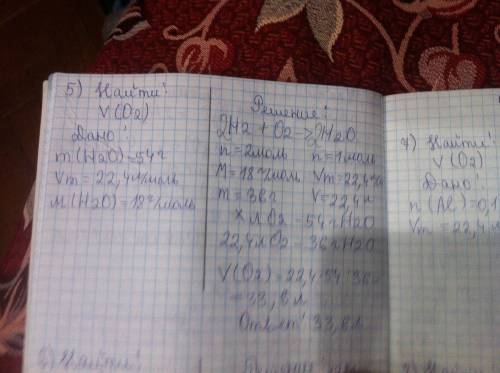 5) Найти:
V(O2)
Дано:
m(H2O)=54г
Vm=22,4л/моль
M(H2O)=18г/моль
Решение:
2H2 + O2 → 2H2O
n=2моль n=1моль
M=18г/моль Vm=22,4л
m=36г V=22,4л
X л O2 – 54г H2O
22,4л O2 – 36г H2O
V(O2)=22,4·54:36=
=33,6л
Ответ: 33,6л
7) Найти:
V(O2)
Дано:
n(Al)=0,1
Vm=22,4л
Найти: